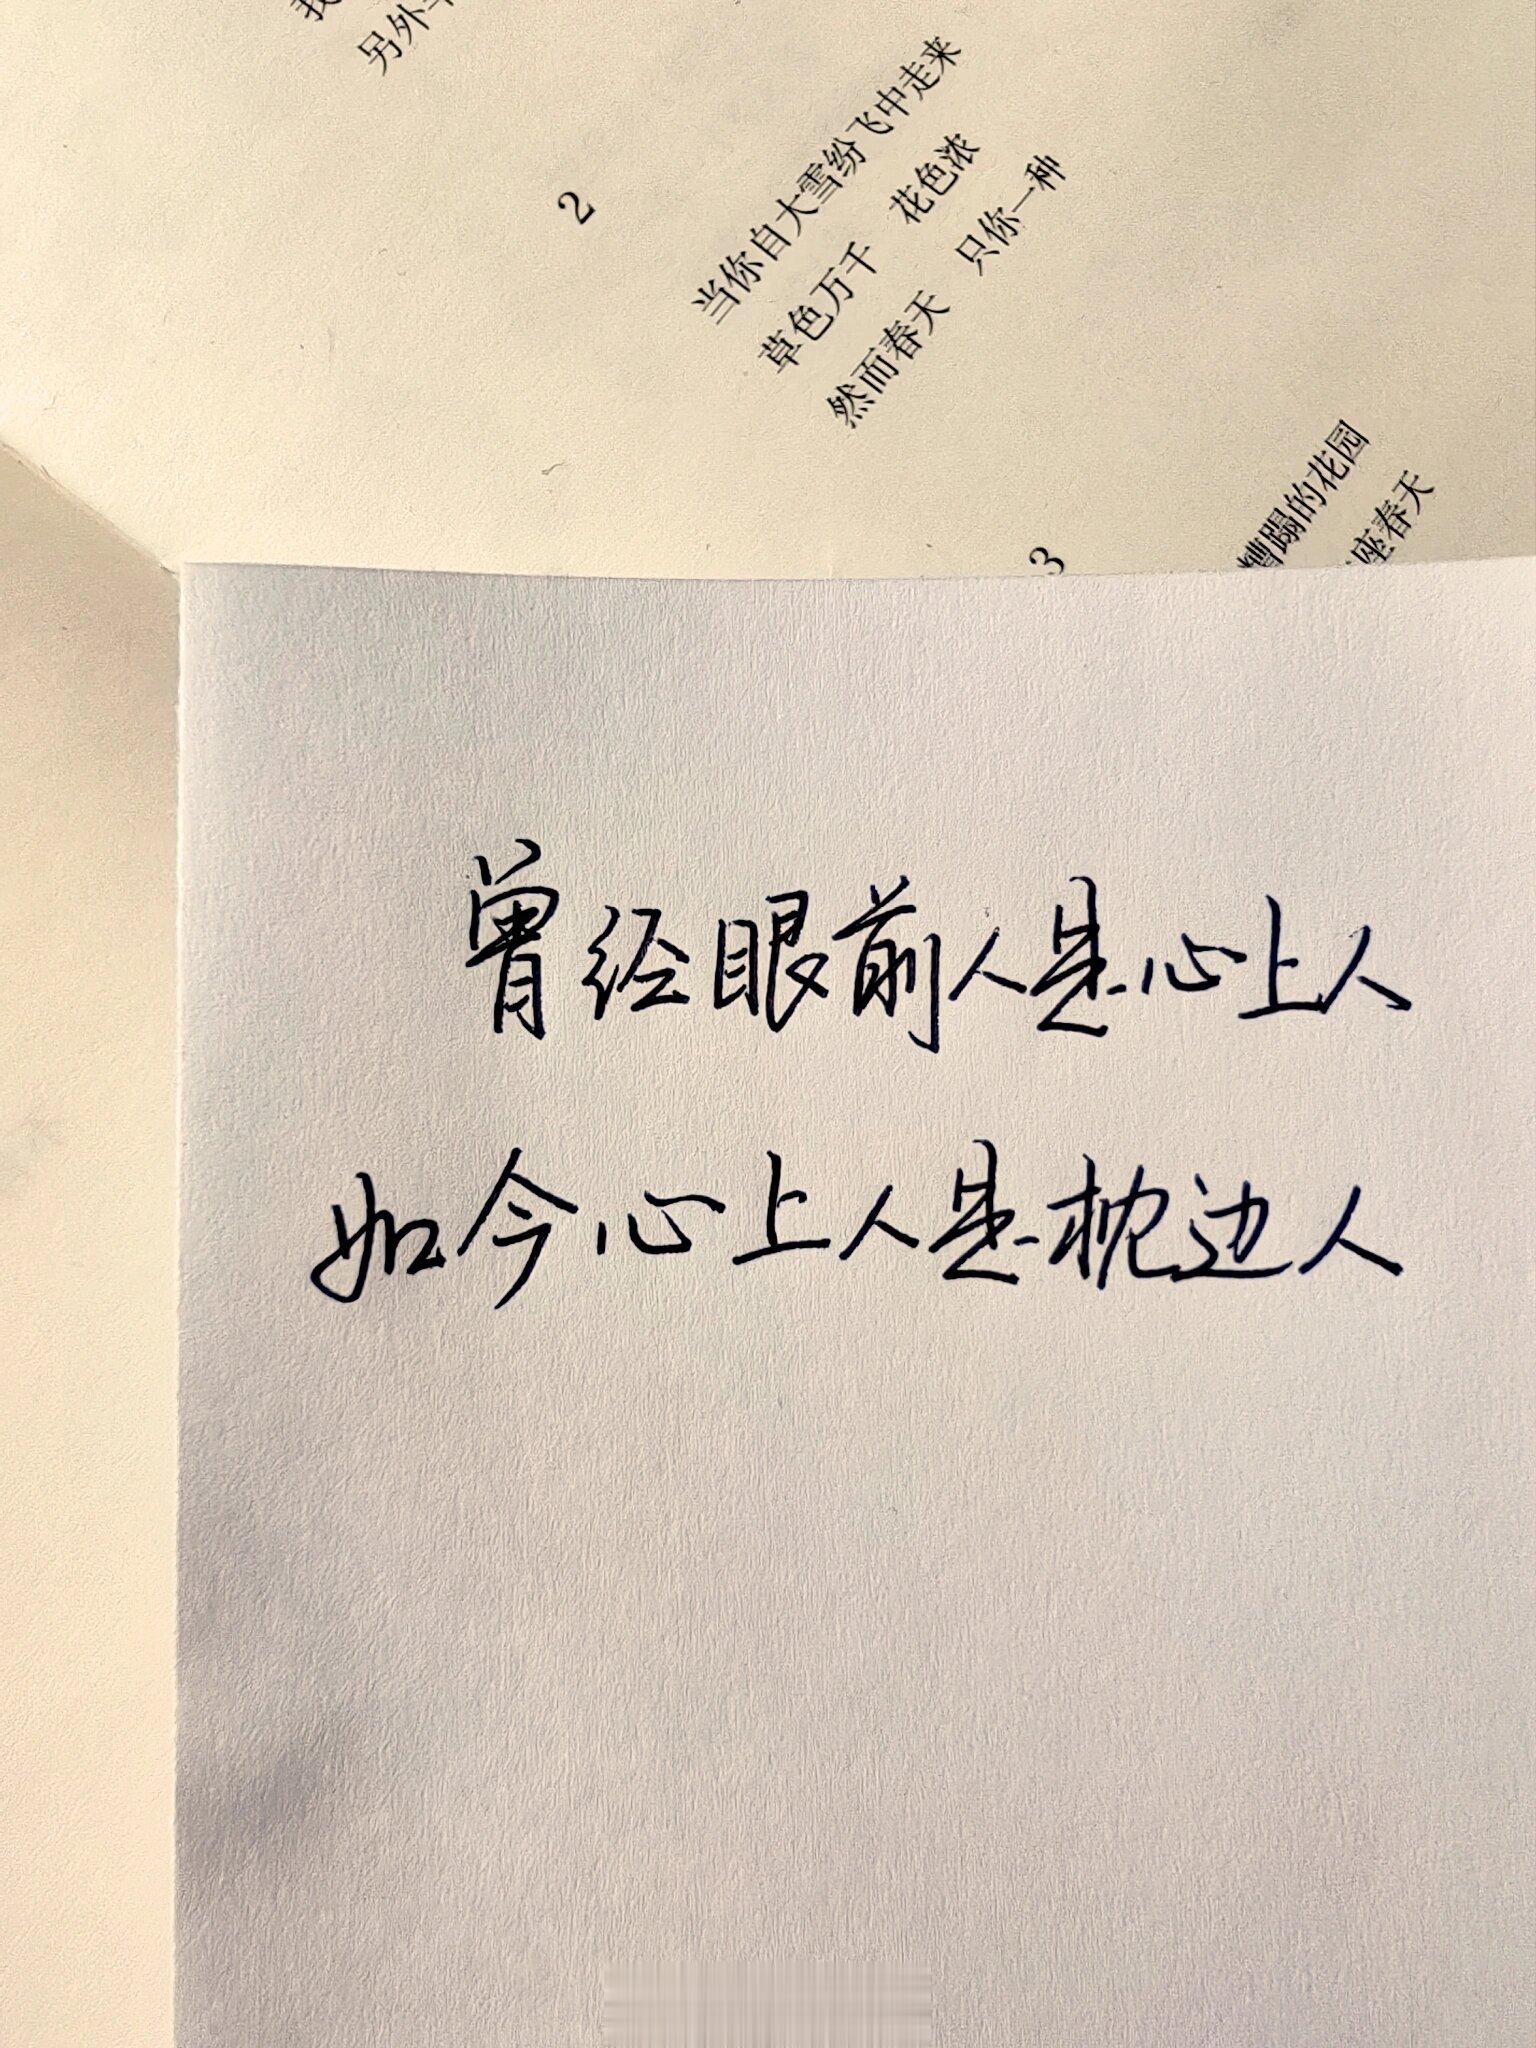 另外
2
当你自大雪纷飞中走来
草色万千　花色浓
然而春天　只你一种
3
糟蹋的花园
座春天
曾经眼前人是心上人
如今心上人是枕边人